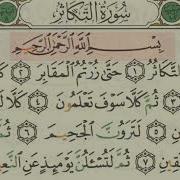 سُورَةُ التَّكَاثُرِ
بِسْمِ اللَّهِ الرَّحْمَٰنِ الرَّحِيمِ
التَّكَاثُرُ ١ حَتَّىٰ زُرْتُمُ الْمَقَابِرَ ٢ كَلَّا
ثُمَّ كَلَّا سَوْفَ تَعْلَمُونَ ٤ كَلَّا
٥ لَتَرَوُنَّ الْجَحِيمَ ٦ ثُمَّ
٧ ثُمَّ لَتُسْـَٔلُنَّ يَوْمَئِذٍ عَنِ